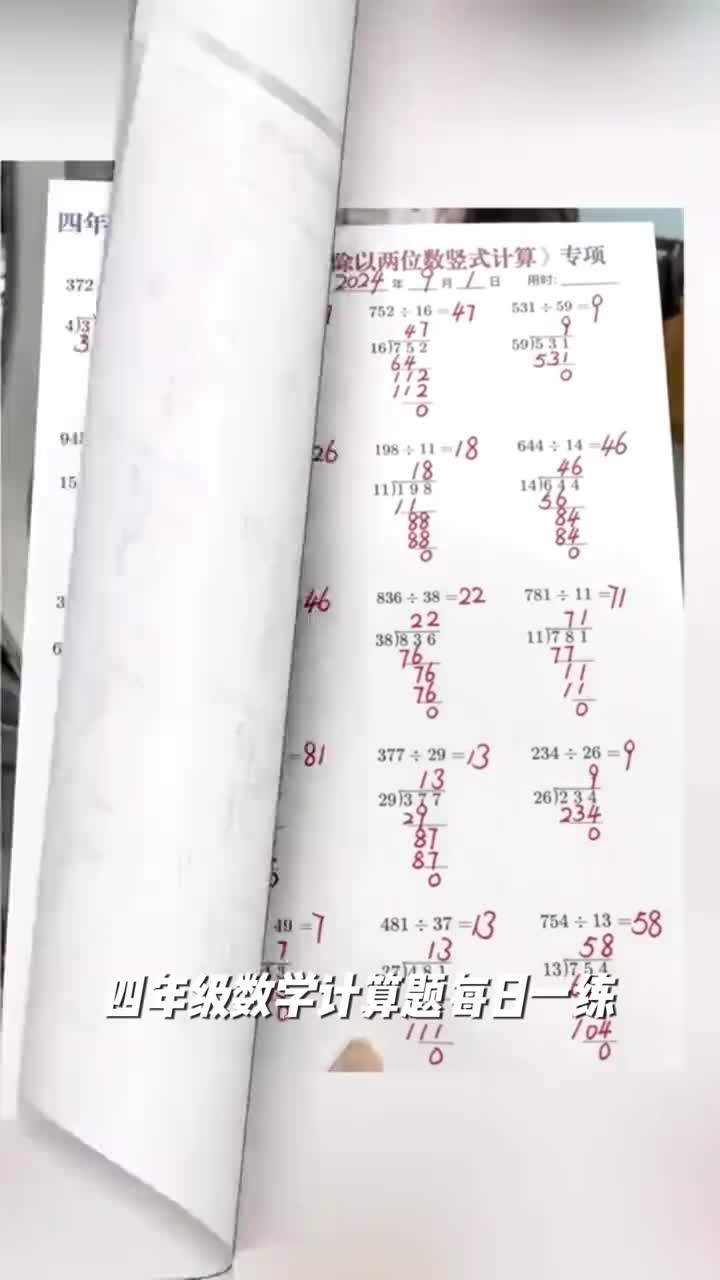 四年
除以两位数竖式计算》专项
2024 年 9 月 1 日 用时:
372
752 ÷ 16 =47
531 ÷ 59 =9
4
3
3
47
16 752
64
112
112
0
9
59 531
531
0
26
198 ÷ 11 =18
644 ÷ 14 =46
15
18
11 198
11
88
88
0
46
14 644
56
84
84
0
46
836 ÷ 38 =22
781 ÷ 11 =71
3
6
22
38 836
76
76
76
0
71
11 781
77
11
11
0
=81
377 ÷ 29 =13
234 ÷ 26 =9
13
29 377
29
87
87
0
9
26 234
234
0
49 =7
481 ÷ 37 =13
754 ÷ 13 =58
7
13
481
111
0
58
13 754
104
0
四年级数学计算题每日一练